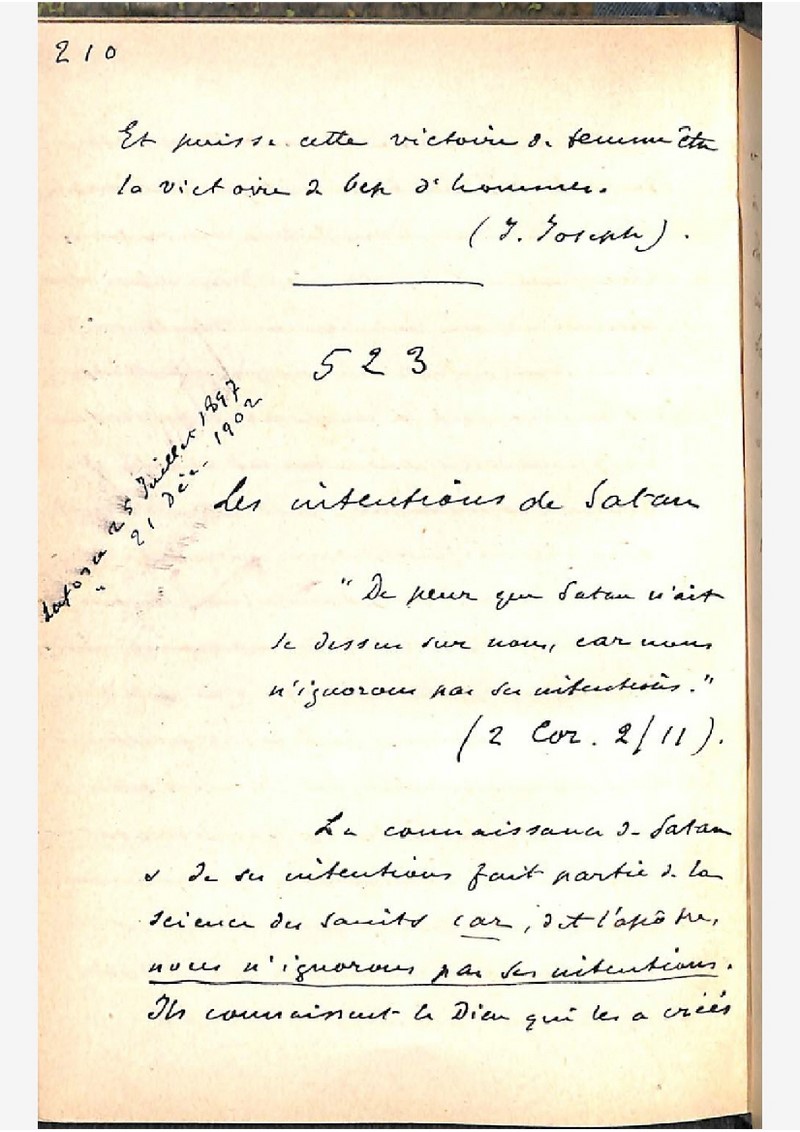 210
Et puisse cette victoire de femme être
la victoire de bcp d'hommes.
(J. Joseph).
523
25 Juillet 1897
" 21 Déc. 1902
Les intentions de Satan
"De peur que Satan n'ait
le dessus sur nous, car nous
n'ignorons pas ses intentions."
(2 Cor. 2/11).
La connaissance de Satan
& de ses intentions fait partie de la
science des saints car, dit l'apôtre,
nous n'ignorons pas ses intentions.
Ils connaissent le Dieu qui les a créés